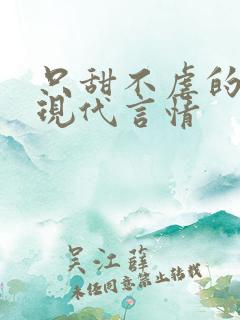 只甜不虐的
現代言情
吴江薛
未经同意禁止转载